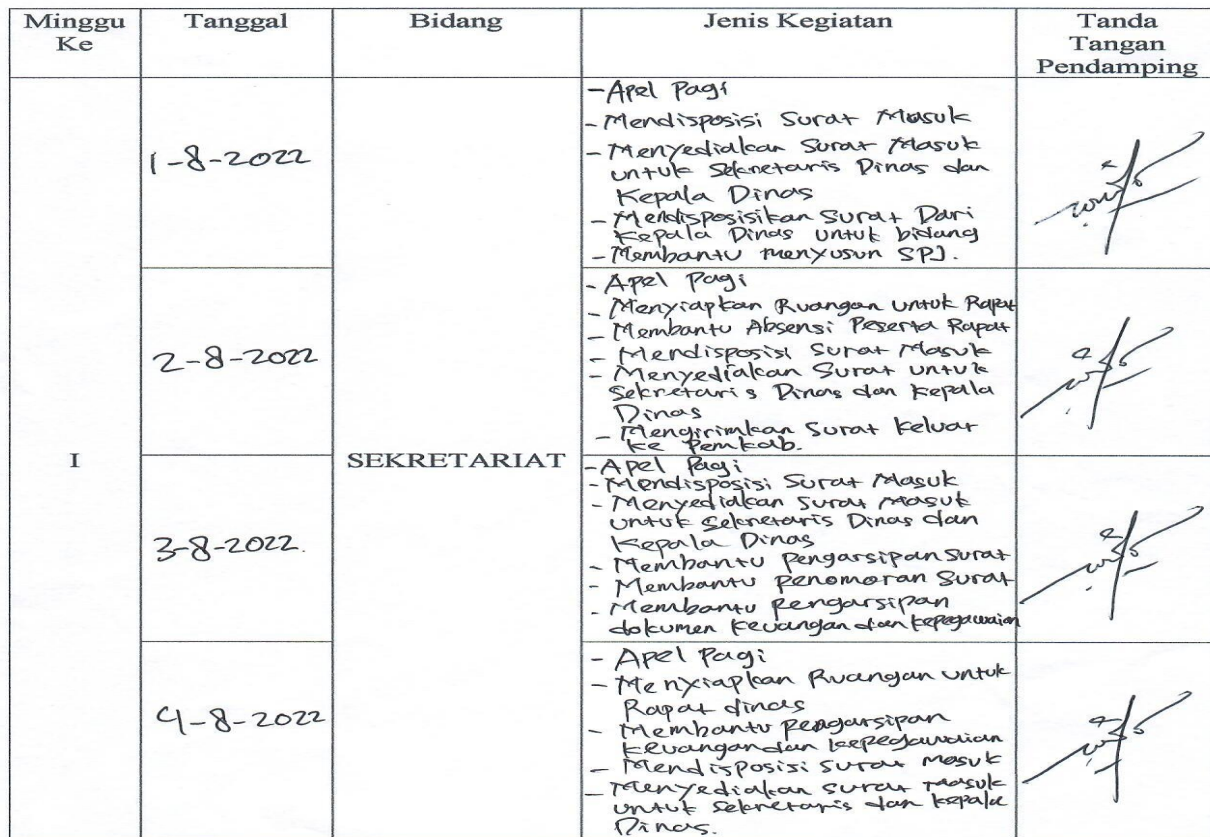 Minggu Ke
Tanggal
Bidang
Jenis Kegiatan
Tanda Tangan Pendamping
I
SEKRETARIAT
1-8-2022
- Apel Pagi
- Mendisposisi Surat Masuk
- Menyediakan Surat Masuk
untuk Sekretaris Dinas dan
Kepala Dinas
- Mendisposisikan Surat Dari
Kepala Dinas untuk bidang
- Membantu menyusun SPJ.
2-8-2022
- Apel Pagi
- Menyiapkan Ruangan untuk Rapat
- Membantu Absensi Peserta Rapat
- Mendisposisi Surat Masuk
- Menyediakan Surat untuk
Sekretaris Dinas dan Kepala
Dinas
- Mengirimkan Surat keluar
ke Pemkab.
3-8-2022.
- Apel Pagi
- Mendisposisi Surat Masuk
- Menyediakan Surat Masuk
untuk Sekretaris Dinas dan
Kepala Dinas
- Membantu Pengarsipan Surat
- Membantu Penomoran Surat
- Membantu Pengarsipan
dokumen keuangan dan kepegawaian
4-8-2022
- Apel Pagi
- Menyiapkan Ruangan untuk
Rapat dinas
- Membantu Pengarsipan
keuangan dan kepegawaian
- Mendisposisi surat masuk
- Menyediakan surat masuk
untuk sekretaris dan kepala
Dinas.